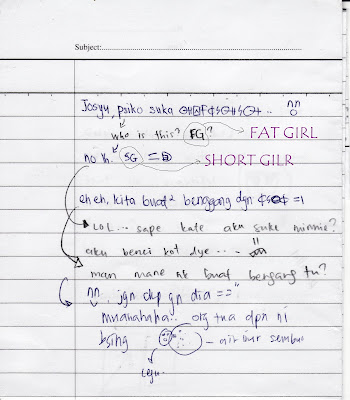 Subject:
Josyu psiko suka
who is this? FG? FAT GIRL
no lh. SG SHORT GILR
eheh, kita buat² benggang dgn
LOL... sape kate aku suke minnie?
aku benci kot dye...
man mane nk buat bengang tu?
nn, jgn ckp gn dia =="
mnahahaha.. org tua dpn ni
bsing - air